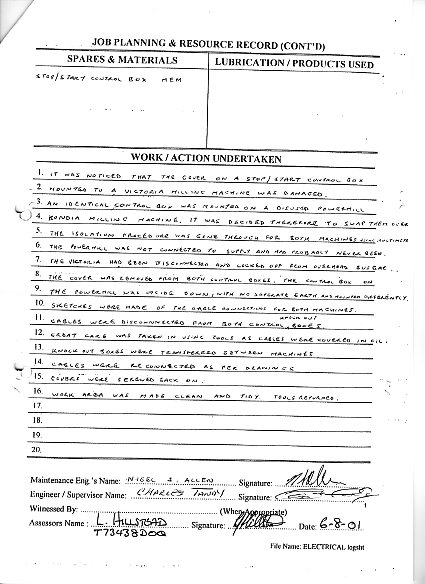 JOB PLANNING & RESOURCE RECORD (CONT'D)
SPARES & MATERIALS
LUBRICATION / PRODUCTS USED
STOP/START CONTROL BOX MEM
WORK / ACTION UNDERTAKEN
1. IT WAS NOTICED THAT THE COVER ON A STOP/START CONTROL BOX
2. MOUNTED TO A VICTORIA MILLING MACHINE WAS DAMAGED.
3. AN IDENTICAL CONTROL BOX WAS MOUNTED ON A DISUSED POWERMILL
4. MILLING MACHINE, IT WAS DECIDED THEREFORE TO SWAP THEM OVER
5. THE ISOLATION PROCEDURE WAS GONE THROUGH FOR BOTH MACHINES USING MULTIMETER
6. THE POWERMILL WAS NOT CONNECTED TO SUPPLY AND HAD PROBABLY NEVER BEEN.
7. THE VICTORIA HAD BEEN DISCONNECTED AND LOCKED OFF FROM OVERHEAD BUSBAR.
8. THE COVER WAS REMOVED FROM BOTH CONTROL BOXES. THE CONTROL BOX ON
9. THE POWERMILL WAS UPSIDE DOWN, WITH NO SEPERATE EARTH AND DIFFERENTLY.
10. SKETCHES WERE MADE OF THE CABLE CONNECTIONS FOR BOTH MACHINES.
11. CABLES WERE DISCONNECTED FROM BOTH CONTROL BOXES.
12. GREAT CARE WAS TAKEN IN USING TOOLS AS CABLES WERE COVERED IN OIL.
13. KNOCK OUT BOXES WERE TRANSFERRED BETWEEN MACHINES
14. CABLES WERE RECONNECTED AS PER DRAWINGS
15. COVERS WERE SCREWED BACK ON.
16. WORK AREA WAS MADE CLEAN AND TIDY. TOOLS RETURNED.
17.
18.
19.
20.
Maintenance Eng.'s Name: NIGEL J. ALLEN Signature:
Engineer / Supervisor Name: CHARLES TANDY Signature:
Witnessed By: (When Appropriate)
Assessors Name: L. HILLSTEAD Signature: Date: 6-8-01
T73438D0Q
File Name: ELECTRICAL logsht